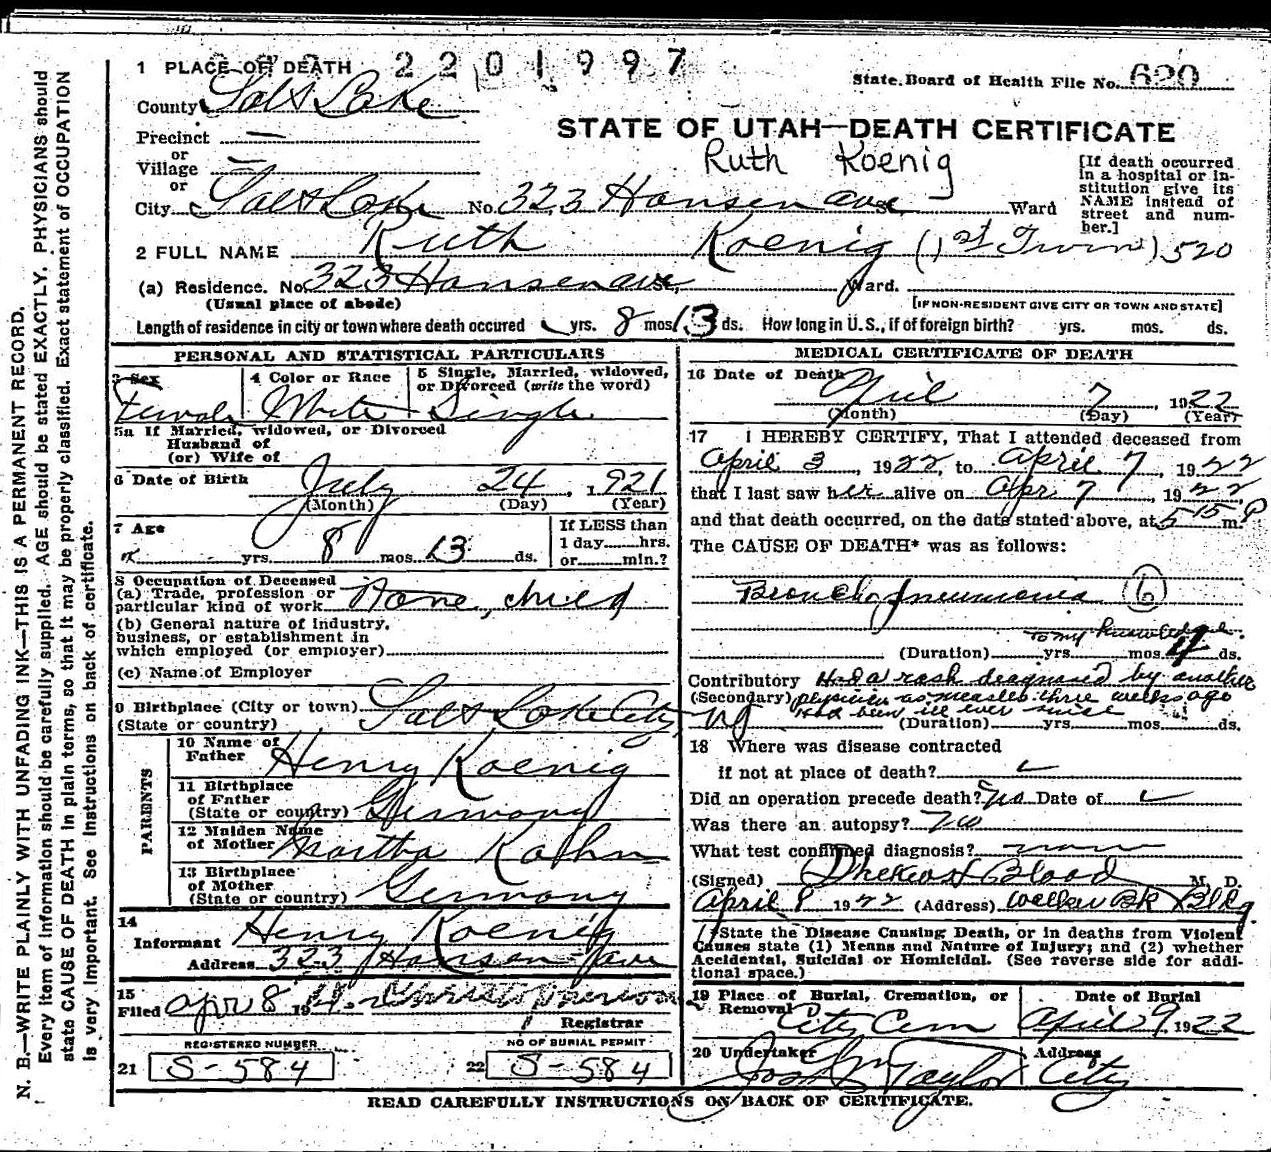 1 PLACE OF DEATH 2201997
State Board of Health File No. 620
County Salt Lake
STATE OF UTAH—DEATH CERTIFICATE
Precinct —
or
Village —
or
Ruth Koenig
[If death occurred in a hospital or institution give its NAME instead of street and number.]
City Salt Lake No. 323 Hansen ave St. Ward
2 FULL NAME Ruth Koenig (1st Twin) 520
(a) Residence. No. 323 Hansen ave St., Ward.
(Usual place of abode) [IF NON-RESIDENT GIVE CITY OR TOWN AND STATE]
Length of residence in city or town where death occured yrs. 8 mos. 13 ds. How long in U.S., if of foreign birth? yrs. mos. ds.
PERSONAL AND STATISTICAL PARTICULARS
3 Sex 4 Color or Race 5 Single, Married, widowed, or Divorced (write the word)
Female White Single
5a If Married, widowed, or Divorced
Husband of
(or) Wife of
6 Date of Birth July 24, 1921
(Month) (Day) (Year)
7 Age If LESS than
1 day hrs.
yrs. 8 mos. 13 ds. or min.?
8 Occupation of Deceased
(a) Trade, profession or
particular kind of work None, child
(b) General nature of industry,
business, or establishment in
which employed (or employer)
(c) Name of Employer
9 Birthplace (City or town) Salt Lake City
(State or country)
PARENTS
10 Name of Father Henry Koenig
11 Birthplace of Father
(State or country) Germany
12 Maiden Name of Mother Martha Kahn
13 Birthplace of Mother
(State or country) Germany
14
Informant Henry Koenig
Address 323 Hansen Ave
15
Filed Apr 8 19
Registrar
REGISTERED NUMBER NO OF BURIAL PERMIT
21 S-584 22 S-584
MEDICAL CERTIFICATE OF DEATH
16 Date of Death April 7, 1922
(Month) (Day) (Year)
17 I HEREBY CERTIFY, That I attended deceased from
April 3, 1922, to April 7, 1922
that I last saw her alive on Apr 7, 1922
and that death occurred, on the date stated above, at 5 15 m. P
The CAUSE OF DEATH* was as follows:
Broncho pneumonia (6)
to my knowledge.
(Duration) yrs. mos. 4 ds.
Contributory Had a rash diagnosed by another
(Secondary) physician as measles three weeks ago
Had been ill ever since
(Duration) yrs. mos. ds.
18 Where was disease contracted
if not at place of death?
Did an operation precede death? No Date of
Was there an autopsy? No
What test confirmed diagnosis? none
(Signed) Blood M. D.
April 8 1922 (Address) Walker Bk Bldg.
*State the Disease Causing Death, or in deaths from Violent
Causes state (1) Means and Nature of Injury; and (2) whether
Accidental, Suicidal or Homicidal. (See reverse side for addi-
tional space.)
19 Place of Burial, Cremation, or Removal Date of Burial
City Cem April 9 1922
20 Undertaker Address
Jos Wm Taylor City
READ CAREFULLY INSTRUCTIONS ON BACK OF CERTIFICATE.
N. B.—WRITE PLAINLY WITH UNFADING INK—THIS IS A PERMANENT RECORD.
Every item of information should be carefully supplied. AGE should be stated EXACTLY. PHYSICIANS should
state CAUSE OF DEATH in plain terms, so that it may be properly classified. Exact statement of OCCUPATION
is very important. See Instructions on back of certificate.